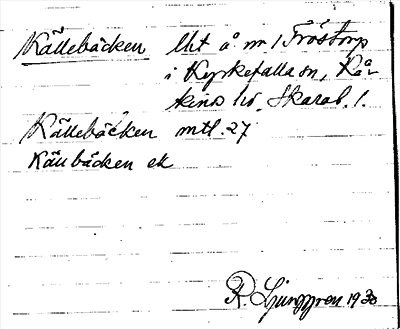 Källebäcken Utt å nr 1 Fröstorp
i Kyrkefalla sn, Kå-
kinds hd, Skarab. l.
Källebäcken mtl. 27
Källbäcken ek
R. Ljunggren 1930